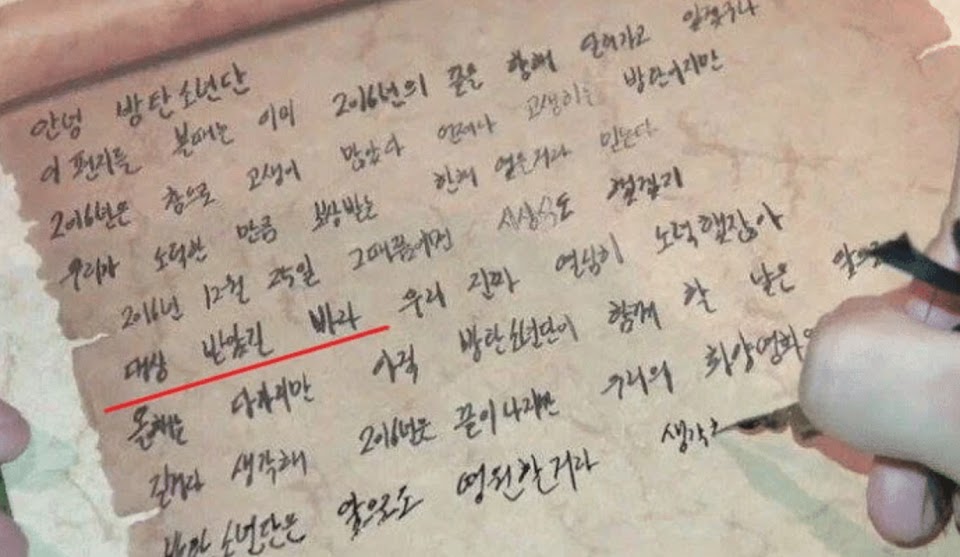 안녕 방탄소년단
이 편지를 볼때는 이미 2016년의 끝을 향해 달려가고 있겠구나
2016년은 참으로 고생이 많았다 언제나 고생하는 방탄이지만
우리가 노력한 만큼 보상받는 한해 였을거라 믿는다
2016년 12월 25일 그때쯤에면 시상식도 했겠지
대상 받았길 바라 우리 진짜 열심히 노력했잖아
올해는 다가지만 아직 방탄소년단이 함께 할 날은 앞으로
길었다 생각해 2016년은 끝이나지만 우리의 화양연화와
방탄소년단은 앞으로도 영원할거라 생각